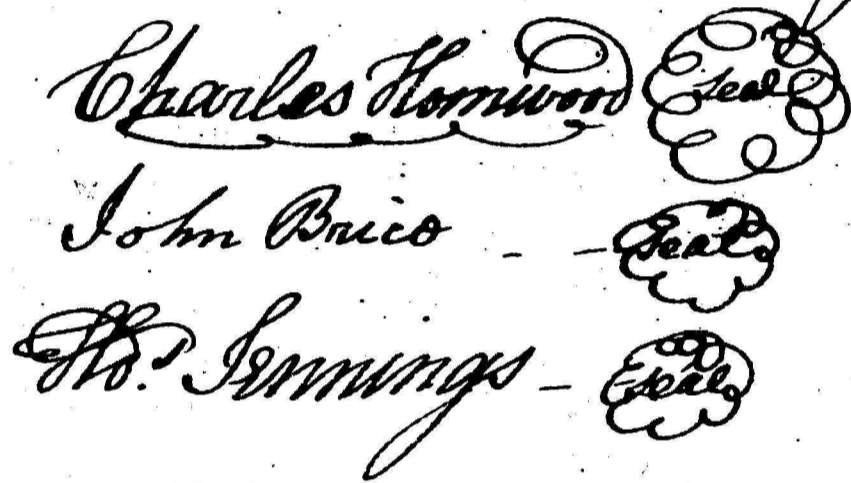 Charles Homwood seal
John Brice - - Seal
Tho.s Jennings - seal